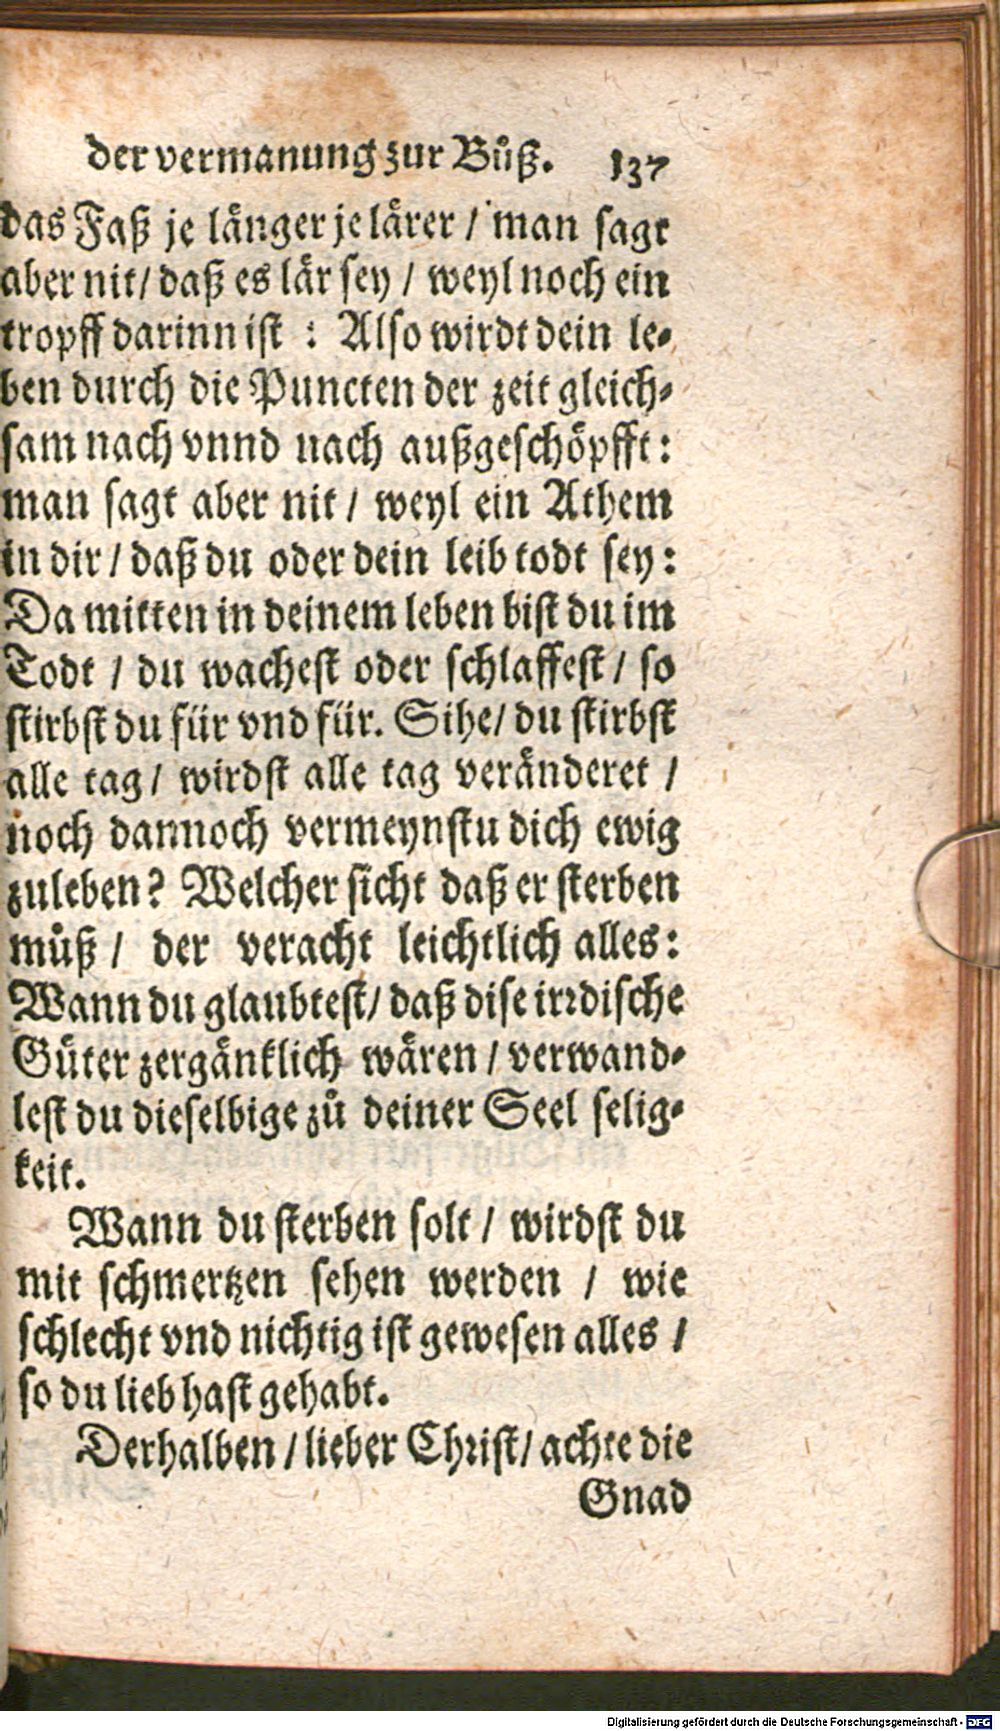 der vermanung zur Bůß. 137
das Faß je länger je lärer / man sagt
aber nit / daß es lär sey / weyl noch ein
tropff darinn ist : Also wirdt dein le-
ben durch die Puncten der zeit gleich-
sam nach vnnd nach außgeschöpfft :
man sagt aber nit / weyl ein Athem
in dir / daß du oder dein leib todt sey :
Da mitten in deinem leben bist du im
Todt / du wachest oder schlaffest / so
stirbst du für vnd für. Sihe / du stirbst
alle tag / wirdst alle tag veränderet /
noch dannoch vermeynstu dich ewig
zuleben? Welcher sicht daß er sterben
můß / der veracht leichtlich alles :
Wann du glaubtest / daß dise irrdische
Güter zergänklich wären / verwand-
lest du dieselbige zů deiner Seel selig-
keit.
Wann du sterben solt / wirdst du
mit schmertzen sehen werden / wie
schlecht vnd nichtig ist gewesen alles /
so du lieb hast gehabt.
Derhalben / lieber Christ / achte die
Gnad
Digitalisierung gefördert durch die Deutsche Forschungsgemeinschaft - DFG